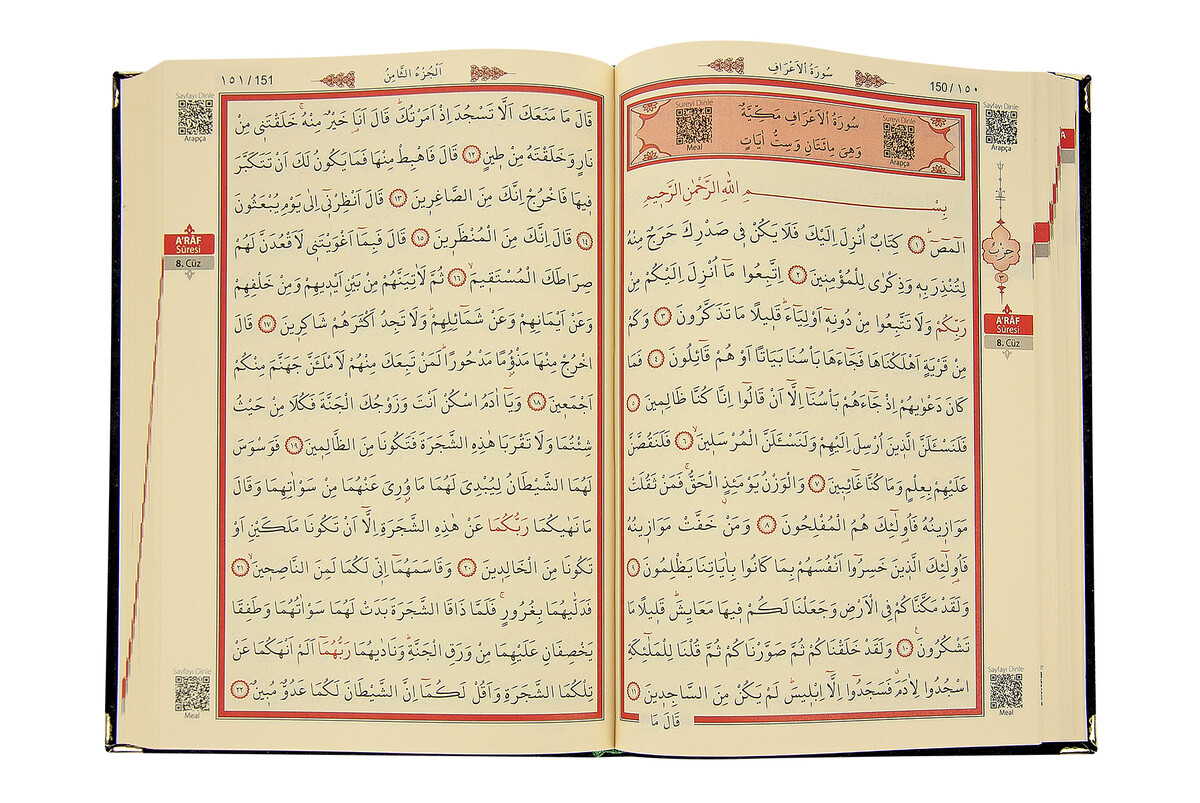 150/١٥٠
سُورَةُ الْاَعْرَافِ
Sureyi Dinle
Meal
سُورَةُ الْاَعْرَافِ مَكِّيَّةٌ
وَهِيَ مِائَتَانِ وَسِتُّ اٰيَاتٍ
Sureyi Dinle
Arapça
بِسْمِ اللّٰهِ الرَّحْمٰنِ الرَّحٖيمِ
الٓمٓصٓ ۚ ﴿١﴾ كِتَابٌ اُنْزِلَ اِلَيْكَ فَلَا يَكُنْ فٖى صَدْرِكَ حَرَجٌ مِنْهُ
لِتُنْذِرَ بِهٖ وَذِكْرٰى لِلْمُؤْمِنٖينَ ﴿٢﴾ اِتَّبِعُوا مَٓا اُنْزِلَ اِلَيْكُمْ مِنْ
رَبِّكُمْ وَلَا تَتَّبِعُوا مِنْ دُونِهٖٓ اَوْلِيَٓاءَۜ قَلٖيلًا مَا تَذَكَّرُونَ ﴿٣﴾ وَكَمْ
مِنْ قَرْيَةٍ اَهْلَكْنَاهَا فَجَٓاءَهَا بَأْسُنَا بَيَاتًا اَوْ هُمْ قَٓائِلُونَ ﴿٤﴾ فَمَا
كَانَ دَعْوٰيهُمْ اِذْ جَٓاءَهُمْ بَأْسُنَٓا اِلَّٓا اَنْ قَالُٓوا اِنَّا كُنَّا ظَالِمٖينَ ﴿٥﴾
فَلَنَسْـَٔلَنَّ الَّذٖينَ اُرْسِلَ اِلَيْهِمْ وَلَنَسْـَٔلَنَّ الْمُرْسَلٖينَۙ ﴿٦﴾ فَلَنَقُصَّنَّ
عَلَيْهِمْ بِعِلْمٍ وَمَا كُنَّا غَٓائِبٖينَ ﴿٧﴾ وَالْوَزْنُ يَوْمَئِذٍ الْحَقُّۚ فَمَنْ ثَقُلَتْ
مَوَازٖينُهُ فَاُو۬لٰٓئِكَ هُمُ الْمُفْلِحُونَ ﴿٨﴾ وَمَنْ خَفَّتْ مَوَازٖينُهُ
فَاُو۬لٰٓئِكَ الَّذٖينَ خَسِرُٓوا اَنْفُسَهُمْ بِمَا كَانُوا بِاٰيَاتِنَا يَظْلِمُونَ ﴿٩﴾
وَلَقَدْ مَكَّنَّاكُمْ فِى الْاَرْضِ وَجَعَلْنَا لَكُمْ فٖيهَا مَعَايِشَۜ قَلٖيلًا مَا
تَشْكُرُونَ۟ ﴿١٠﴾ وَلَقَدْ خَلَقْنَاكُمْ ثُمَّ صَوَّرْنَاكُمْ ثُمَّ قُلْنَا لِلْمَلٰٓئِكَةِ
اسْجُدُوا لِاٰدَمَۗ فَسَجَدُٓوا اِلَّٓا اِبْلٖيسَۜ لَمْ يَكُنْ مِنَ السَّاجِدٖينَ ﴿١١﴾
قَالَ مَا
Sayfayı Dinle
Arapça
حزب
٣
A'RÂF
Sûresi
8. Cüz
Sayfayı Dinle
Meal
اَلْجُزْءُ الثَّامِنُ
١٥١/151
قَالَ مَا مَنَعَكَ اَلَّا تَسْجُدَ اِذْ اَمَرْتُكَۜ قَالَ اَنَا۬ خَيْرٌ مِنْهُۚ خَلَقْتَنٖى مِنْ
نَارٍ وَخَلَقْتَهُ مِنْ طٖينٍ ﴿١٢﴾ قَالَ فَاهْبِطْ مِنْهَا فَمَا يَكُونُ لَكَ اَنْ تَتَكَبَّرَ
فٖيهَا فَاخْرُجْ اِنَّكَ مِنَ الصَّاغِرٖينَ ﴿١٣﴾ قَالَ اَنْظِرْنٖٓى اِلٰى يَوْمِ يُبْعَثُونَ
﴿١٤﴾ قَالَ اِنَّكَ مِنَ الْمُنْظَرٖينَ ﴿١٥﴾ قَالَ فَبِمَٓا اَغْوَيْتَنٖى لَاَقْعُدَنَّ لَهُمْ
صِرَاطَكَ الْمُسْتَقٖيمَۙ ﴿١٦﴾ ثُمَّ لَاٰتِيَنَّهُمْ مِنْ بَيْنِ اَيْدٖيهِمْ وَمِنْ خَلْفِهِمْ
وَعَنْ اَيْمَانِهِمْ وَعَنْ شَمَٓائِلِهِمْۜ وَلَا تَجِدُ اَكْثَرَهُمْ شَاكِرٖينَ ﴿١٧﴾ قَالَ
اخْرُجْ مِنْهَا مَذْؤُ۫مًا مَدْحُورًاۜ لَمَنْ تَبِعَكَ مِنْهُمْ لَاَمْلَـَٔنَّ جَهَنَّمَ مِنْكُمْ
اَجْمَعٖينَ ﴿١٨﴾ وَيَٓا اٰدَمُ اسْكُنْ اَنْتَ وَزَوْجُكَ الْجَنَّةَ فَكُلَا مِنْ حَيْثُ
شِئْتُمَا وَلَا تَقْرَبَا هٰذِهِ الشَّجَرَةَ فَتَكُونَا مِنَ الظَّالِمٖينَ ﴿١٩﴾ فَوَسْوَسَ
لَهُمَا الشَّيْطَانُ لِيُبْدِىَ لَهُمَا مَا وُ۫رِىَ عَنْهُمَا مِنْ سَوْاٰتِهِمَا وَقَالَ
مَا نَهٰيكُمَا رَبُّكُمَا عَنْ هٰذِهِ الشَّجَرَةِ اِلَّٓا اَنْ تَكُونَا مَلَكَيْنِ اَوْ
تَكُونَا مِنَ الْخَالِدٖينَ ﴿٢٠﴾ وَقَاسَمَهُمَٓا اِنّٖى لَكُمَا لَمِنَ النَّاصِحٖينَۙ ﴿٢١﴾
فَدَلّٰيهُمَا بِغُرُورٍۚ فَلَمَّا ذَاقَا الشَّجَرَةَ بَدَتْ لَهُمَا سَوْاٰتُهُمَا وَطَفِقَا
يَخْصِفَانِ عَلَيْهِمَا مِنْ وَرَقِ الْجَنَّةِۜ وَنَادٰيهُمَا رَبُّهُمَٓا اَلَمْ اَنْهَكُمَا عَنْ
تِلْكُمَا الشَّجَرَةِ وَاَقُلْ لَكُمَٓا اِنَّ الشَّيْطَانَ لَكُمَا عَدُوٌّ مُبٖينٌ ﴿٢٢﴾
Sayfayı Dinle
Arapça
A'RÂF
Sûresi
8. Cüz
Sayfayı Dinle
Meal